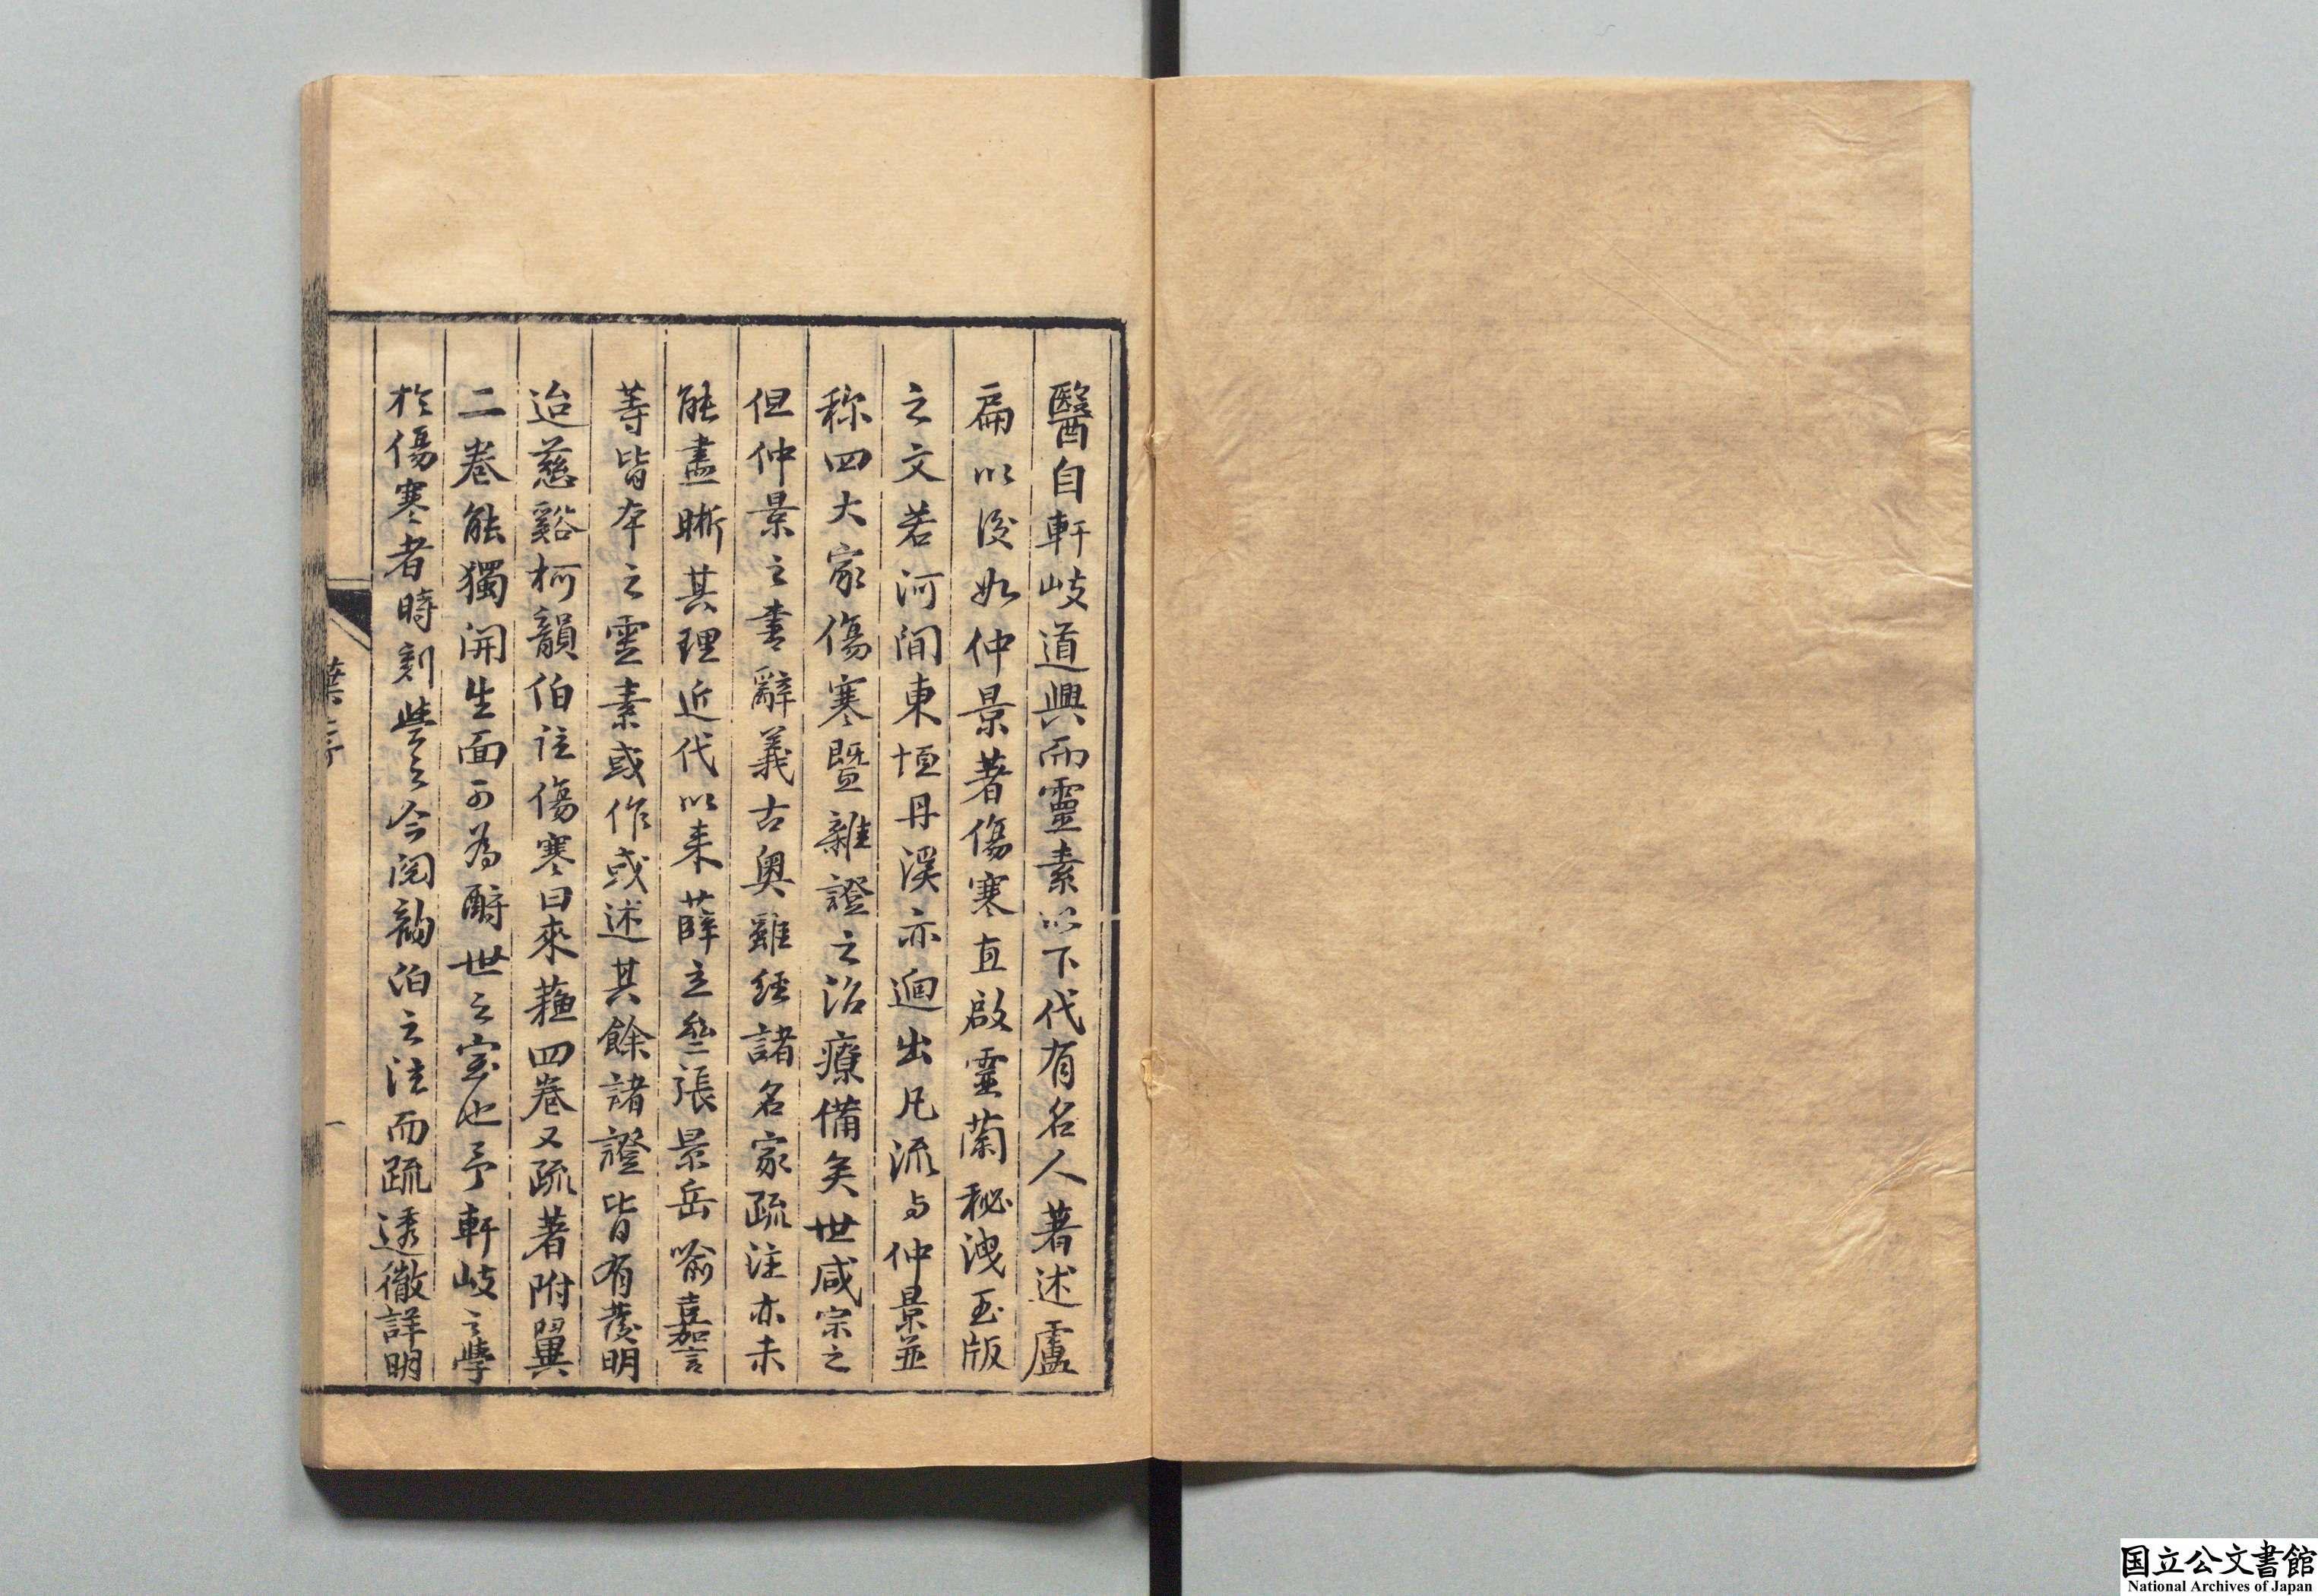 醫自軒岐道興而靈素以下代有名人著述盧
扁以後如仲景著傷寒直啟靈蘭秘洩玉版
之文若河間東垣丹溪亦迥出凡流与仲景並
称四大家傷寒暨雜證之治療備矣世咸宗之
但仲景之書辭義古奥雖經諸名家疏注亦未
能盡晰其理近代以来薛立斋張景岳喻嘉言
等皆本之靈素或作或述其餘諸證皆有發明
迨慈谿柯韻伯註傷寒曰來蘓四卷又疏著附翼
二卷能獨開生面可為醻世之寶也予軒岐之學
於傷寒者時刻營之今閱韵伯之注而疏透徹詳明
葉序
一
国立公文書館
National Archives of Japan